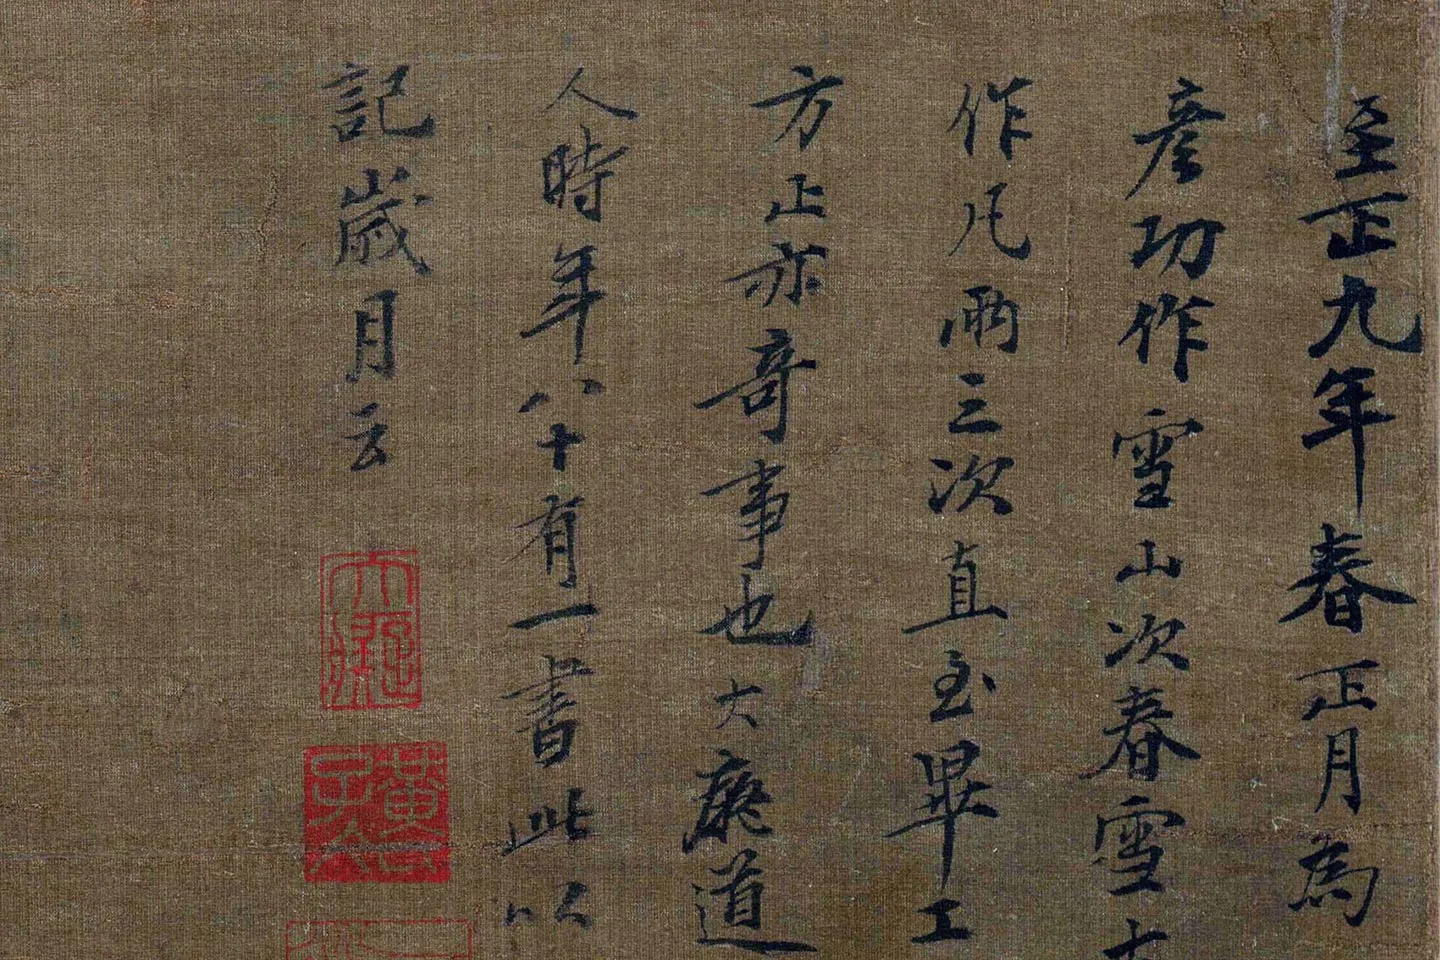 至正九年春正月為
彥功作雪山次春雪大
作凡兩三次直至畢工
方止亦奇事也大癡道
人時年八十有一書此以
記歲月云
大癡
黃公